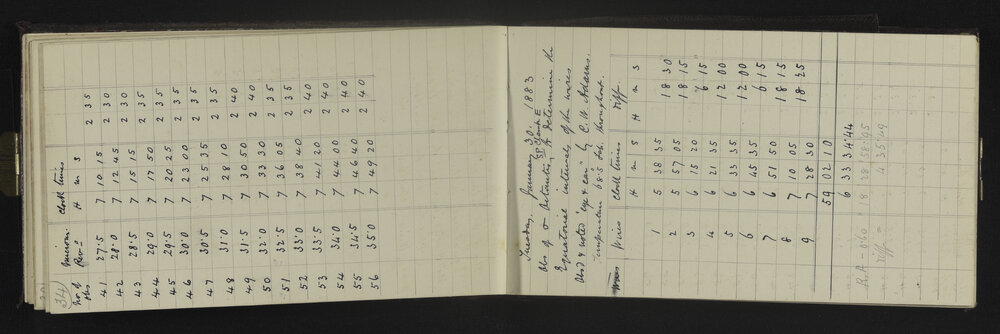 34)
No. of obs Microm. Revns Clock times
H m s
41 27.5 7 10 15 2 35
42 28.0 7 12 45 2 30
43 28.5 7 15 15 2 35
44 29.0 7 17 50 2 35
45 29.5 7 20 25 2 35
46 30.0 7 23 00 2 35
47 30.5 7 25 35 2 35
48 31.0 7 28 10 2 40
49 31.5 7 30 50 2 40
50 32.0 7 33 30 2 35
51 32.5 7 36 05 2 35
52 33.0 7 38 40 2 40
53 33.5 7 41 20 2 40
54 34.0 7 44 00 2 40
55 34.5 7 46 40 2 40
56 35.0 7 49 20
Tuesday, January 30. 1883
Obs of σ Octantis, SP Clamp E to determine the
Equatorial intervals of the wires
Obsd & noted "eye & ear" by C. W. Adams.
temperature 68.5 Fah. throughout.
Wires Clock times Diff.
H m s H m s
1 5 38 35 18 30
2 5 57 05 18 15
3 6 15 20 6 15
4 6 21 35 12 00
5 6 33 35 12 00
6 6 45 35 6 15
7 6 51 50 18 15
8 7 10 05 18 25
9 7 28 30
59 02 10
6 33 34.44
R.A - 0.60 18 28 58.05
Diff = 4 35.49